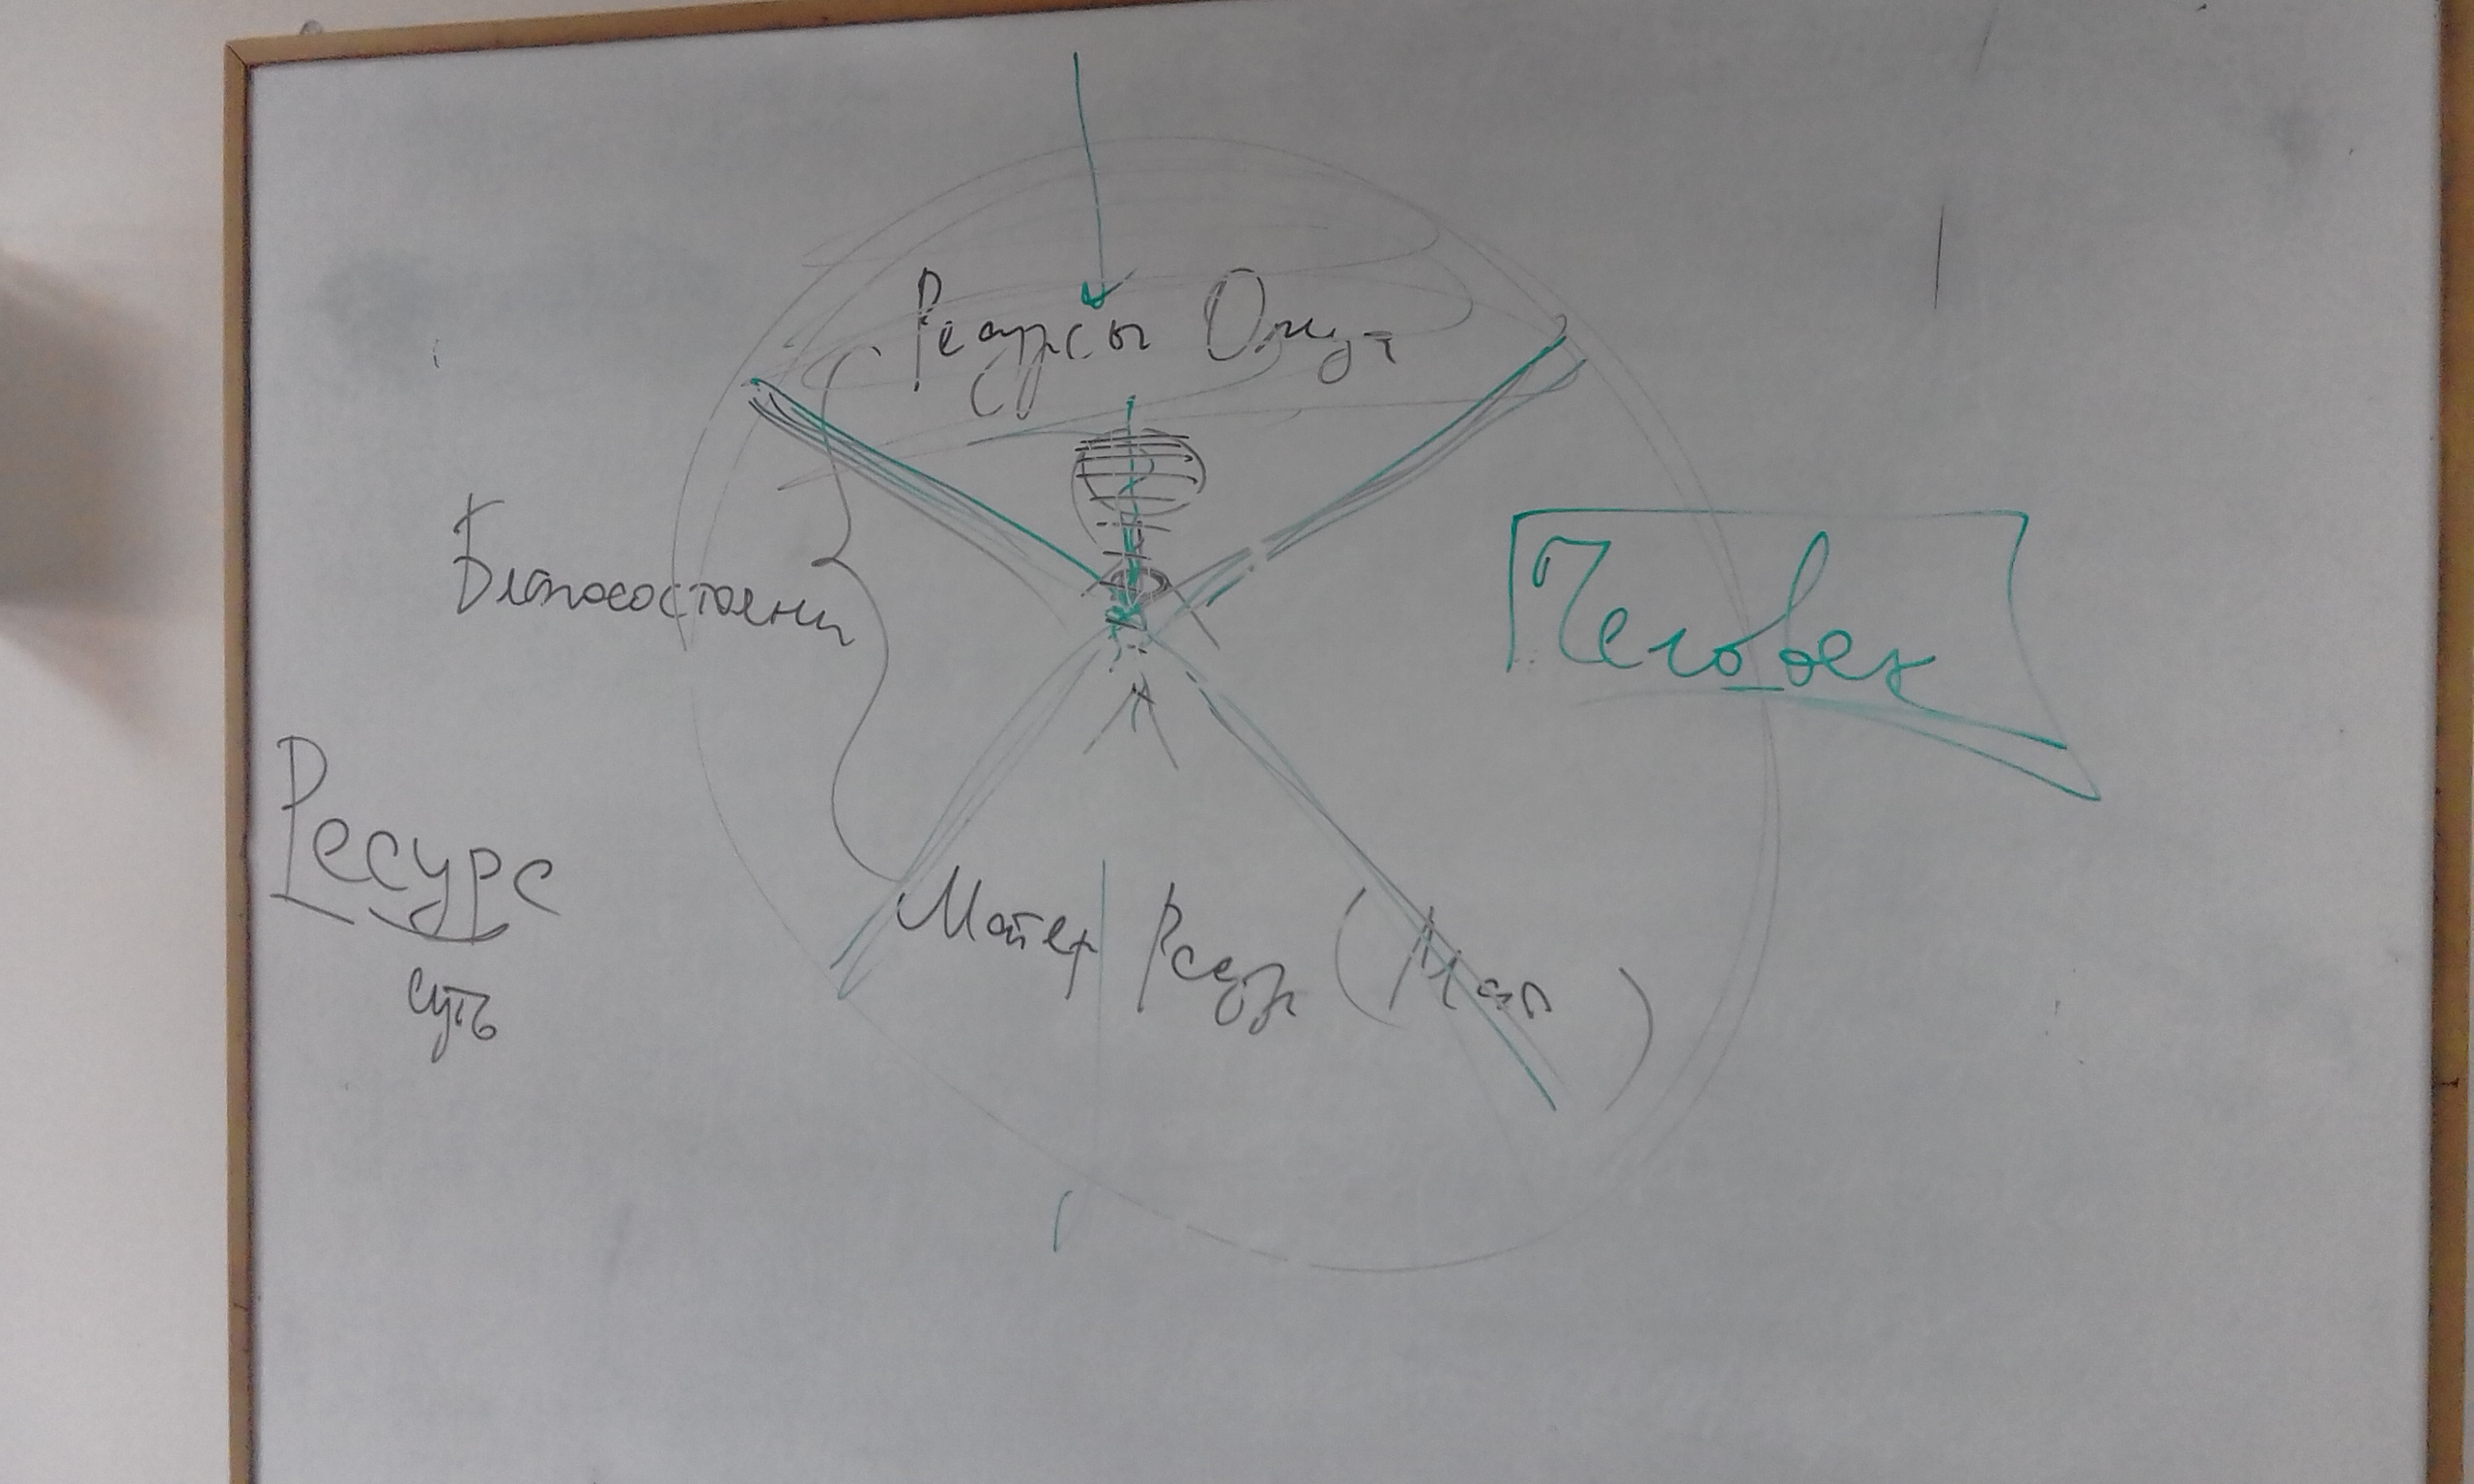 Ресурсы Ощущ
Благосостояни
Человек
Ресурс
суть
Матер Ресур (Мат )